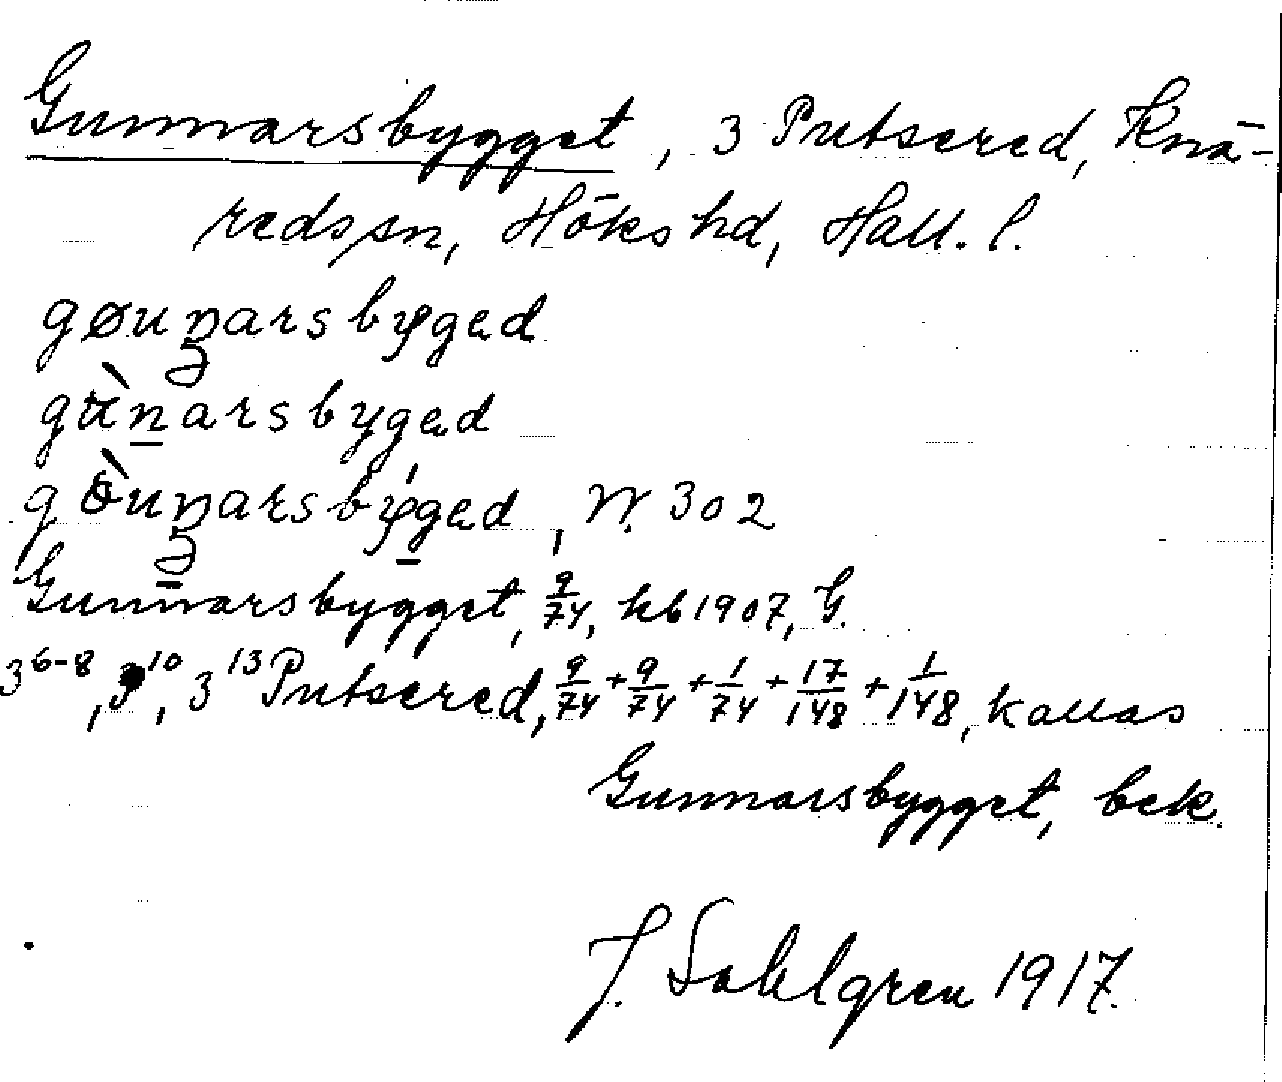 Gunnarsbygget, 3 Putsered, Knä-
redssn, Höks hd, Hall. l.
gøuṉarsbyged
gùṉarsbyged
gòuṉarsbyged, N. 302
Gunnarsbygget, 9/74, kb 1907, G.
3⁶⁻⁸, 3¹⁰, 3¹³ Putsered, 9/74 + 9/74 + 1/74 + 17/148 + 1/148, kallas
Gunnarsbygget, bek.
J. Sahlgren 1917.